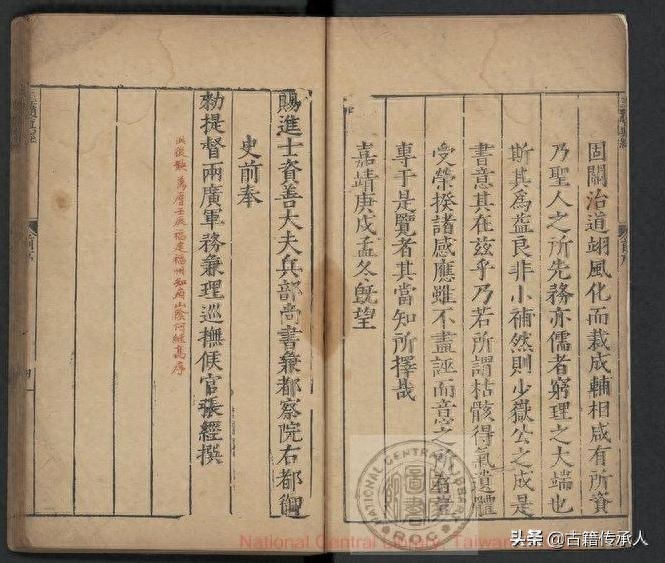 固關治道翊風化而裁成輔相咸有所資
乃聖人之所先務亦儒者窮理之大端也
斯其為益良非小補然則少嶽公之成是
書意其在玆乎乃若所謂枯骸得氣遺體
受榮揆諸感應雖不盡誣而音宓之有意
專于是覽者其當知所擇哉
嘉靖庚戌孟冬旣望
賜進士資善大夫兵部尚書兼都察院右都御
史前奉
勑提督兩廣軍務兼理巡撫候官張經撰
此後缺萬曆壬辰福建福州知府山陰何繼高序
NATIONAL CENTRAL LIBRARY
R.O.C.
National Central Library, Taiwan
头条 @古籍传承人